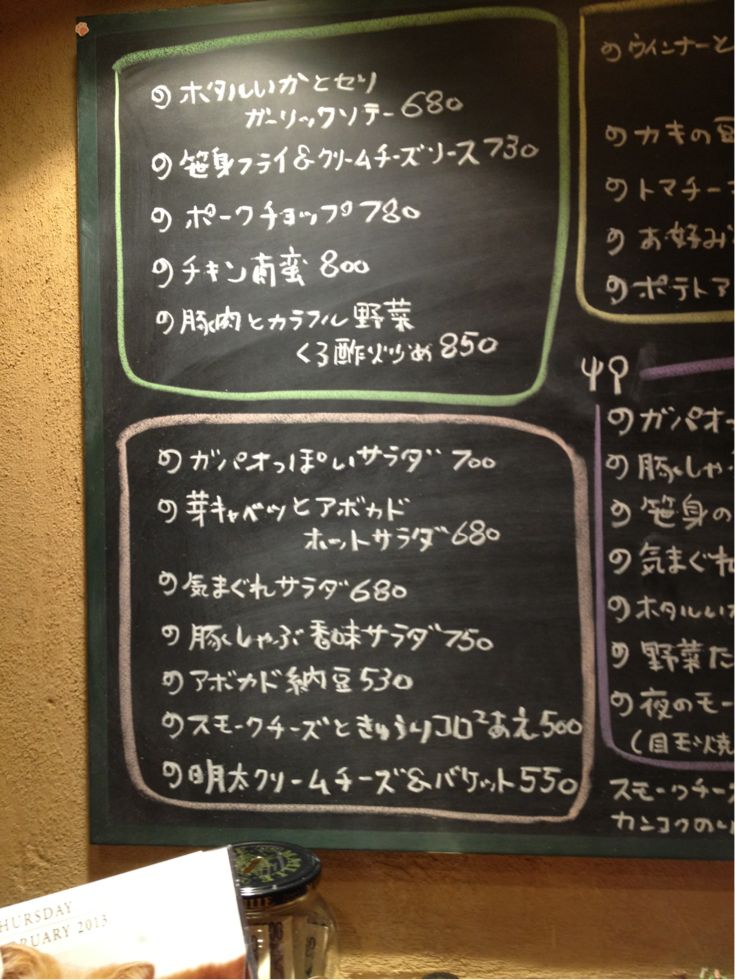 の ホタルいかとセリ
ガーリックソテー 680
の 笹身フライ&クリームチーズソース 730
の ポークチョップ 780
の チキン南蛮 800
の 豚肉とカラフル野菜
くろ酢炒め 850
の ガパオっぽいサラダ 700
の 芽キャベツとアボカド
ホットサラダ 680
の 気まぐれサラダ 680
の 豚しゃぶ香味サラダ 750
の アボカド納豆 530
の スモークチーズときゅうりコロコロあえ 500
の 明太クリームチーズ&バケット 550
の ウインナーと
の カキの
の トマチー
の お好み
の ポテトア
の ガパオっ
の 豚しゃ
の 笹身の
の 気まぐれ
の ホタルいか
の 野菜た
の 夜のモー
(目玉焼
スモークチーズ
カンコクのり
HURSDAY
BRUARY 2013